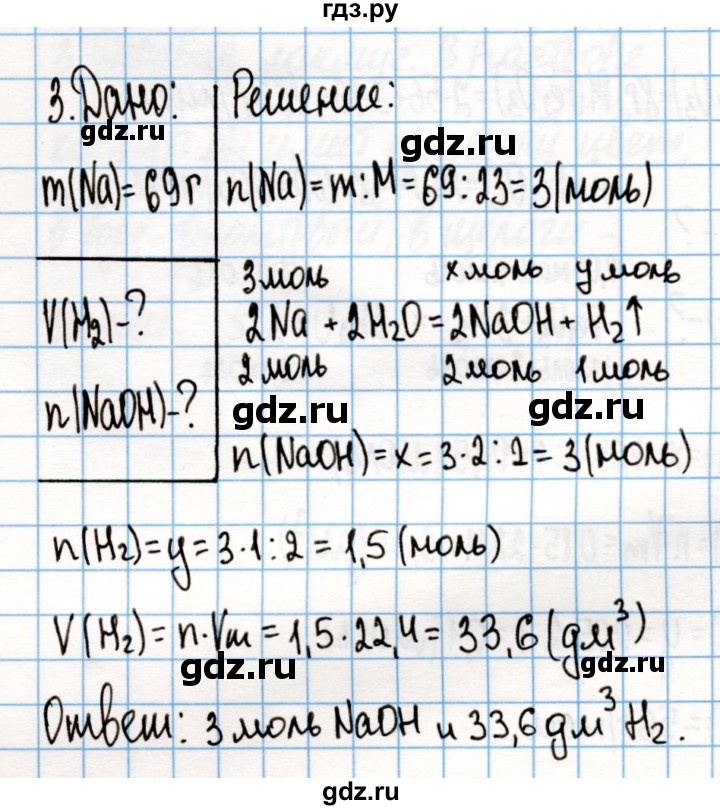 гдз.ру
3. Дано:
gdz.ru
m(Na)=69г
V(H₂)-?
n(NaOH)-?
Решение:
gdz.ru
n(Na)=m:M=69:23=3(моль)
3моль xмоль yмоль
2Na + 2H₂O = 2NaOH + H₂↑
2моль 2моль 1моль
gdz.ru gdz.ru
n(NaOH)=x=3·2:2=3(моль)
n(H₂)=y=3·1:2=1,5(моль)
V(H₂)=n·Vm=1,5·22,4=33,6(дм³)
gdz.ru gdz.ru
Ответ: 3моль NaOH и 33,6дм³ H₂.
gdz.ru gdz.ru